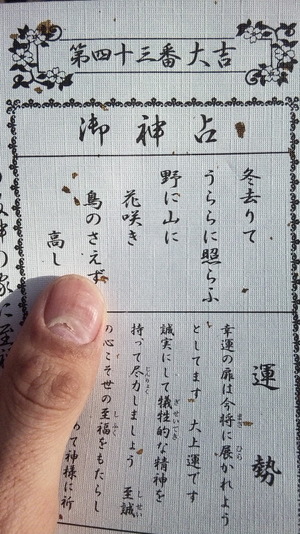 第四十三番大吉
御神占
冬去りて
うららに照らふ
野に山に
花咲き
鳥のさえず
高し
運勢
幸運の扉は今将に展かれよう
としてます 大上運です
誠実にして犠牲的な精神を
持って尽力しましょう 至誠
の心こそ世の至福をもたらし
めて神様に祈